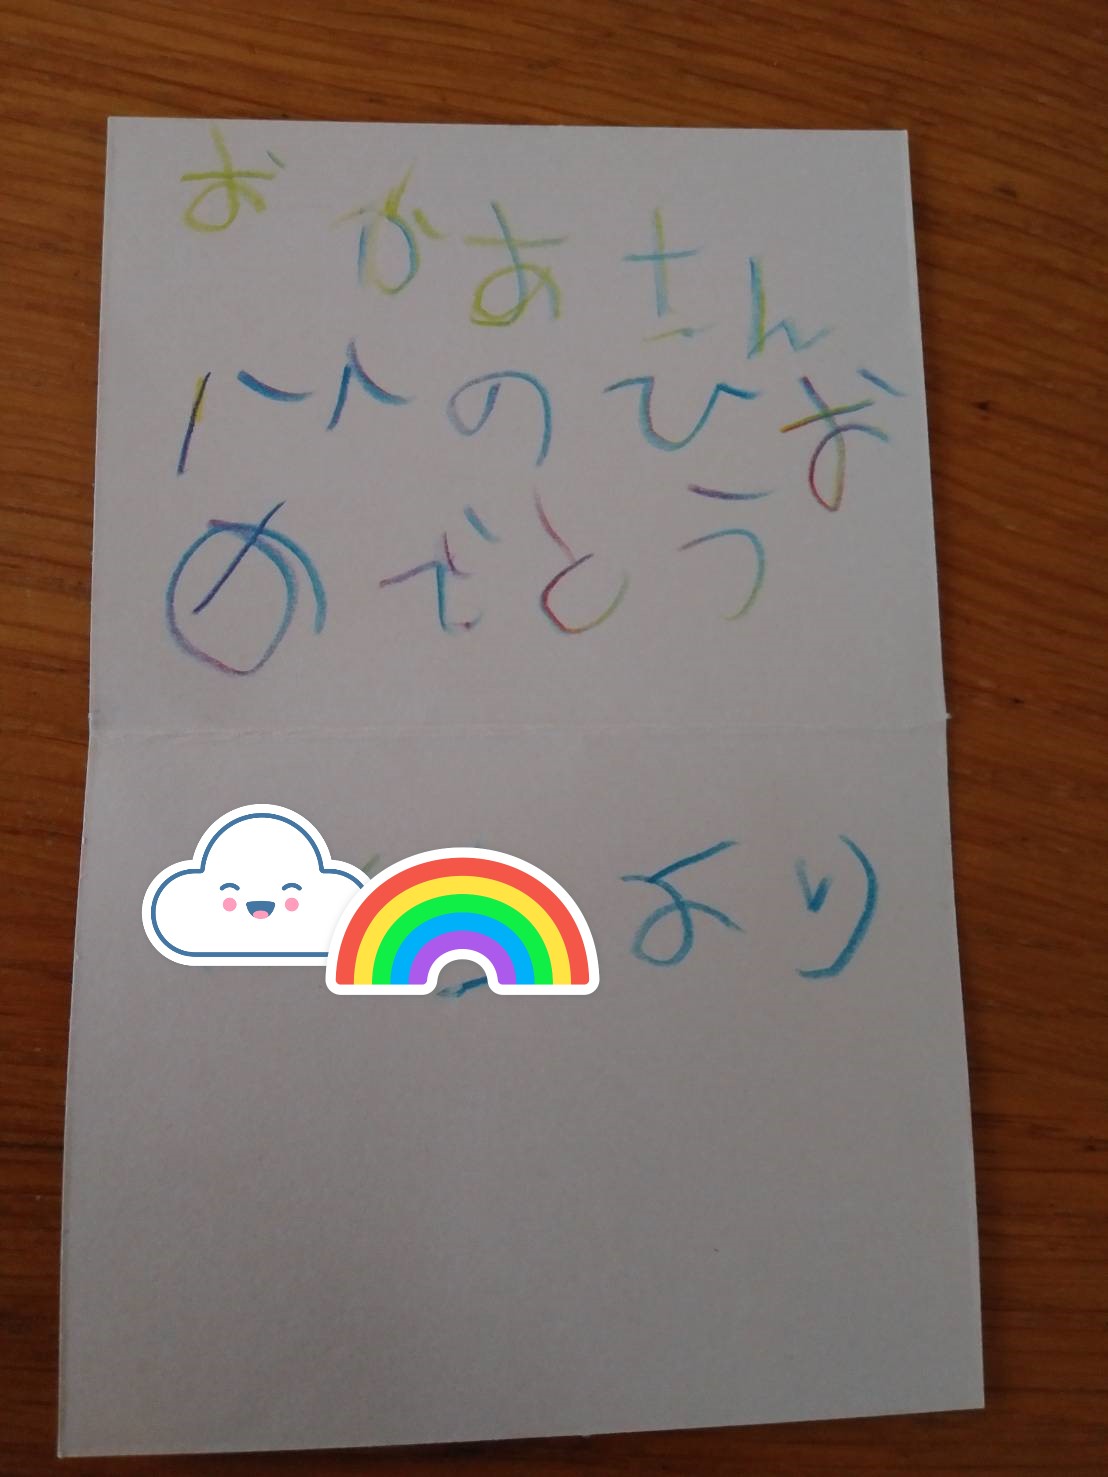 おかあさん
ハハのひお
めでとう
より